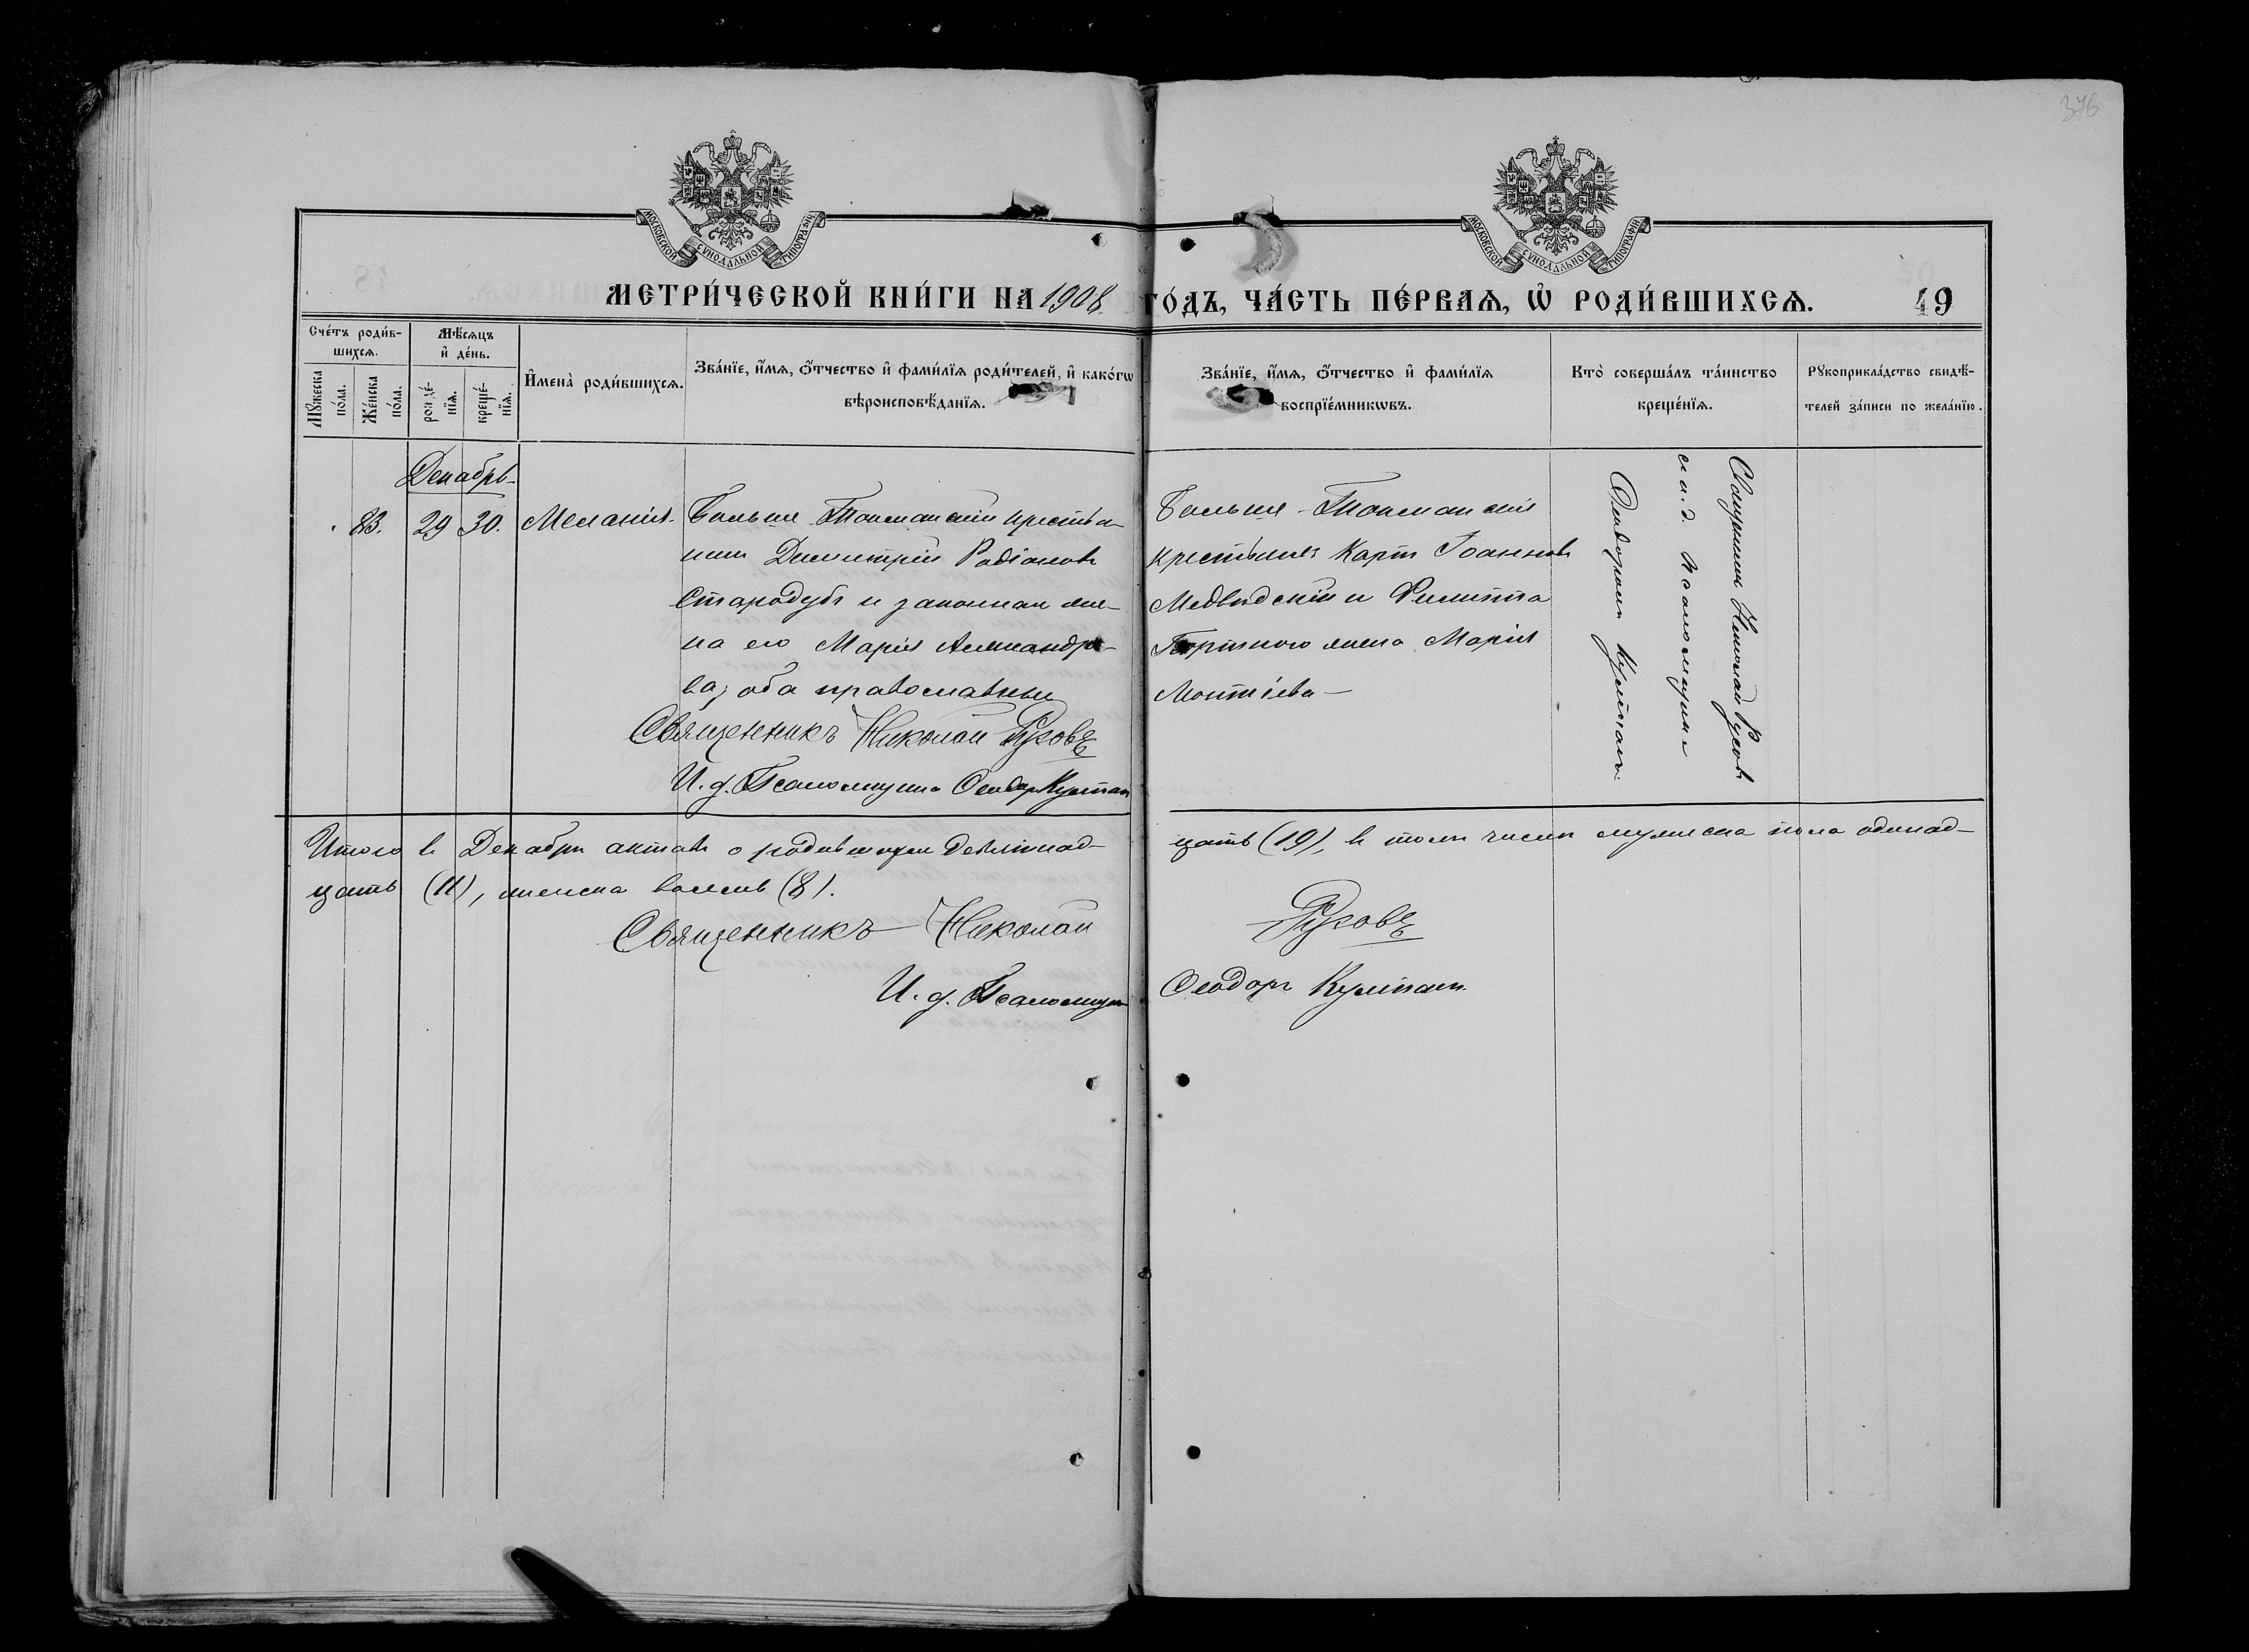 376
МОСКОВСКОЙ СѴНОДАЛЬНОЙ ТИПОГРАФІИ
МОСКОВСКОЙ СѴНОДАЛЬНОЙ ТИПОГРАФІИ
МЕТРИ́ЧЕСКОЙ КНИ́ГИ НА 1908 ГО́ДЪ, ЧА́СТЬ ПЕ́РВАѦ, Ѡ҆ РОДИ́ВШИХСѦ. 49
Сче́тъ роди́в-
шихсѧ.
Мꙋ́жеска по́ла.
Же́нска по́ла.
Мѣ́сѧцъ
и҆ де́нь.
рожде́-
нїѧ.
креще́-
нїѧ.
И҆мена̀ роди́вшихсѧ.
Зва́нїе, и҆́мѧ, ѻ҆́тчество и҆ фами́лїѧ роди́телей, и҆ како́гѡ
вѣроисповѣ́данїѧ.
Зва́нїе, и҆́мѧ, ѻ҆́тчество и҆ фами́лїѧ
воспрїе́мникѡвъ.
Кто̀ соверша́лъ та́инство
креще́нїѧ.
Рꙋкоприкла́дство свидѣ́-
телей за́писи по жела́нїю.
Декабрь
83. 29 30. Меланія.
Больше-Токмакскій крестья-
нинъ Димитрій Родіоновъ
Стародубъ и законная же-
на его Марія Александро-
ва, оба православные
Священникъ Николай Русовъ
И. д. Псаломщика Ѳеодоръ
Больше-Токмакскій
крестьянинъ Карпъ Іоанновъ
Медвѣдскій и Филиппа
жена Марія
Священникъ Николай Русовъ
съ и. д. псаломщика
Ѳеодоромъ
Итого въ Декабрѣ актовъ о родившихся девятнад-
цать (19), въ томъ числѣ мужеска пола одинад-
цать (11), женска восемь (8).
Священникъ Николай Русовъ
И. д. Псаломщика Ѳеодоръ